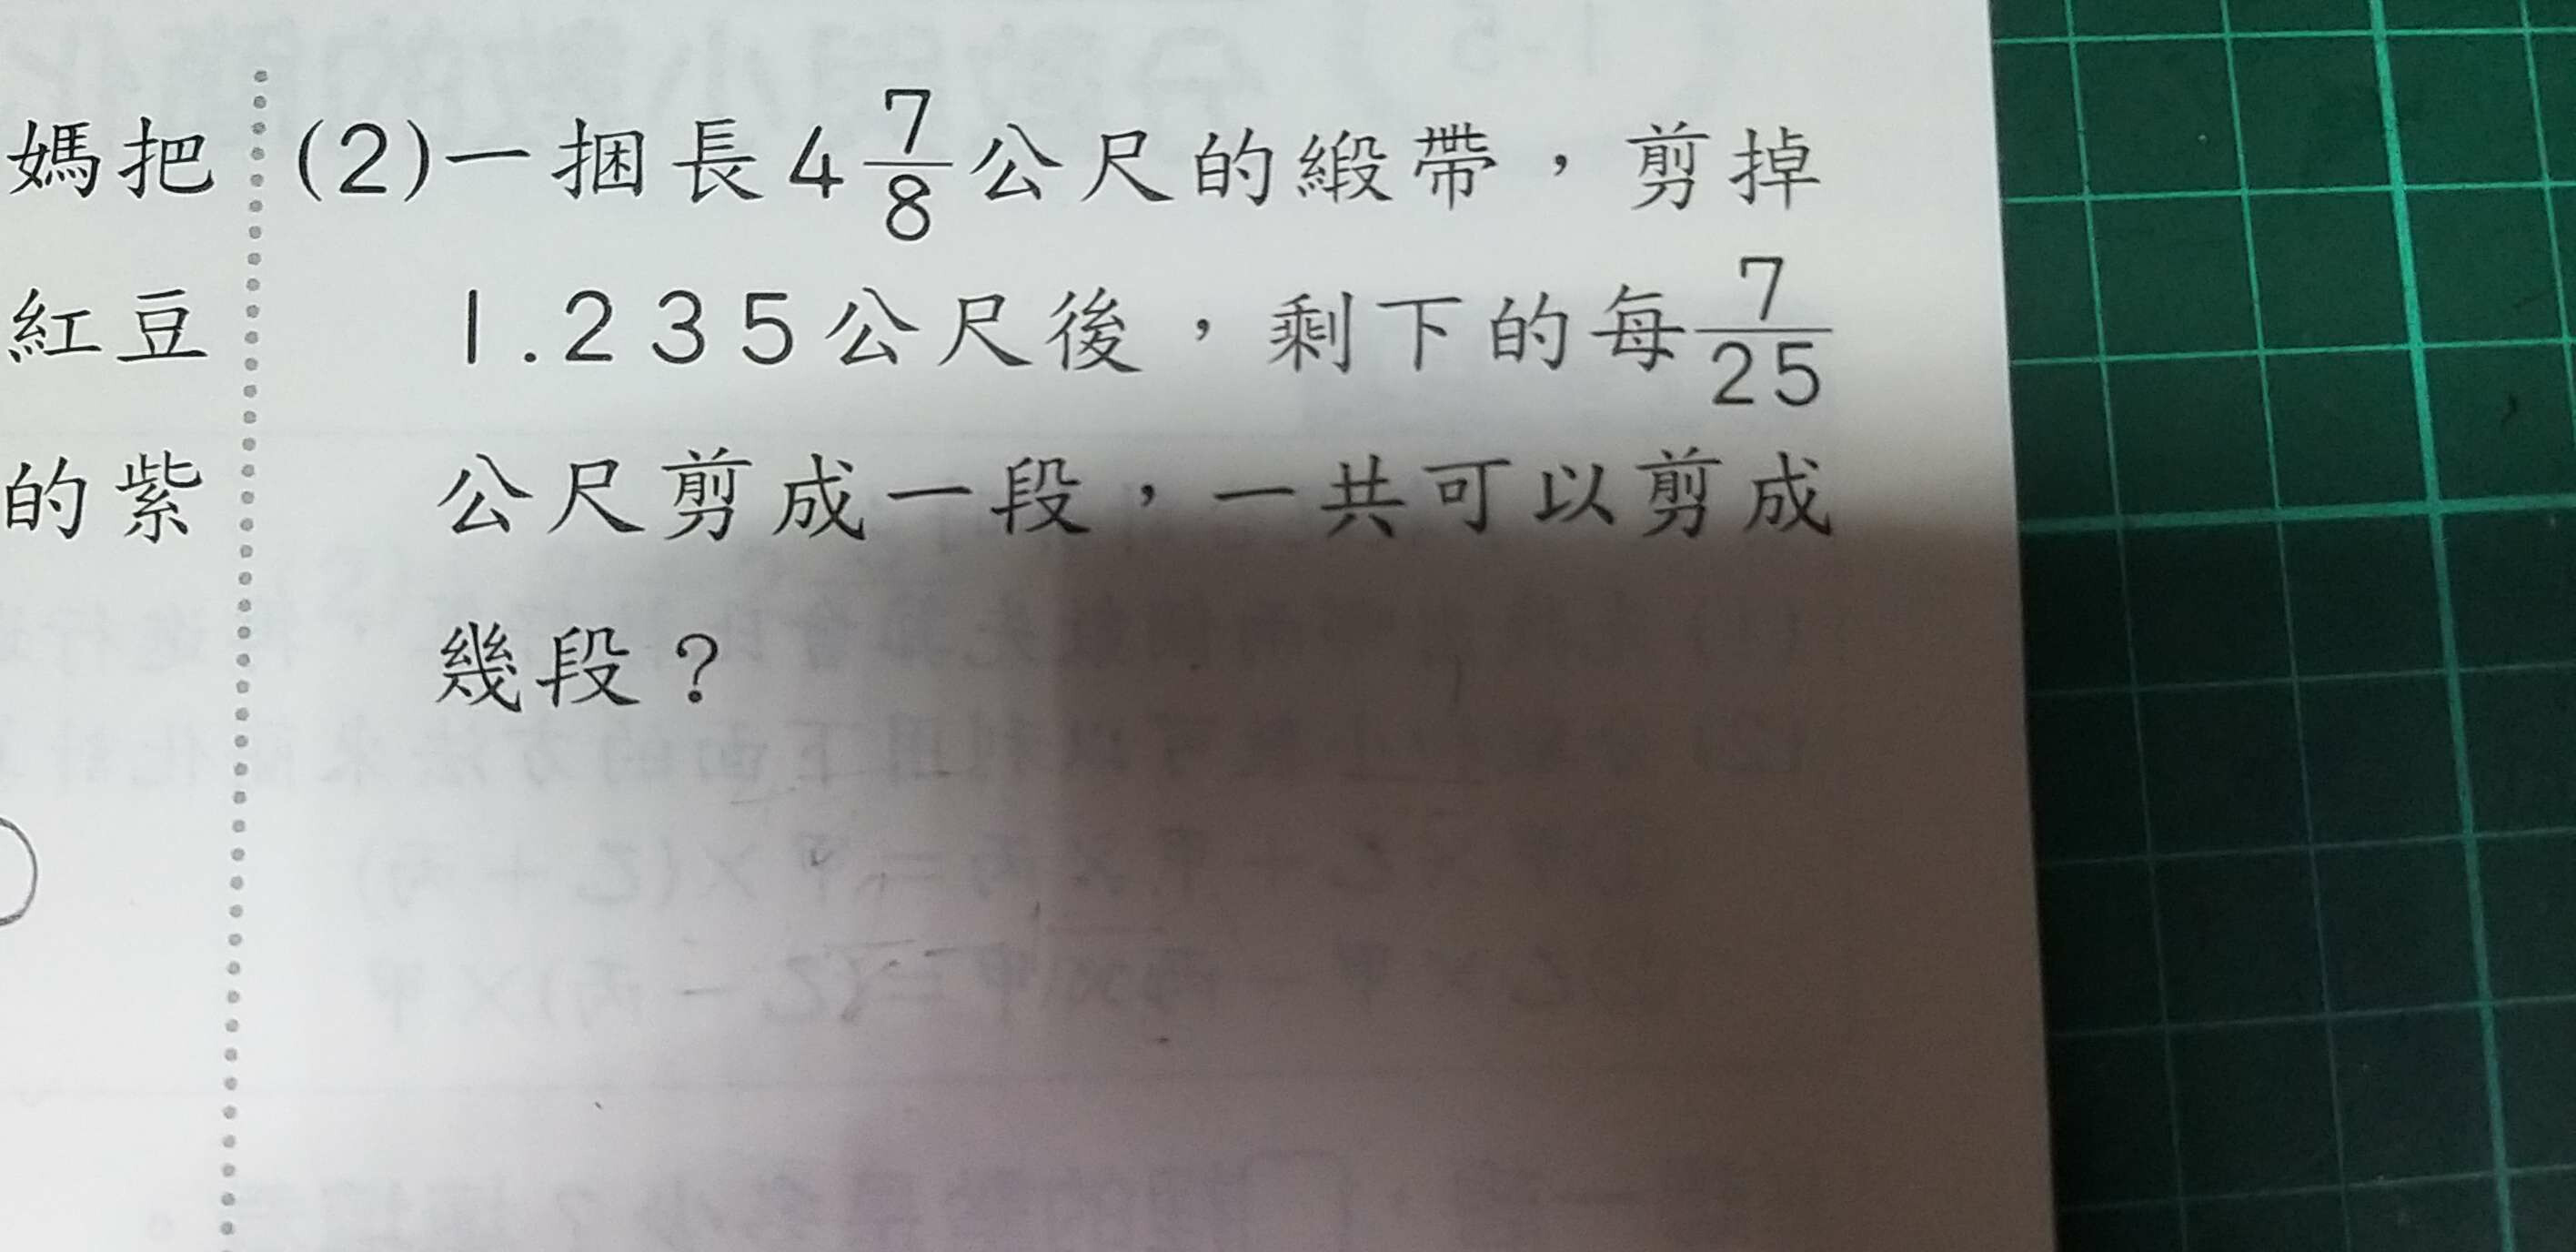 媽把
紅豆
的紫
(2)一捆長4 7/8公尺的緞帶，剪掉
1.235公尺後，剩下的每7/25
公尺剪成一段，一共可以剪成
幾段？